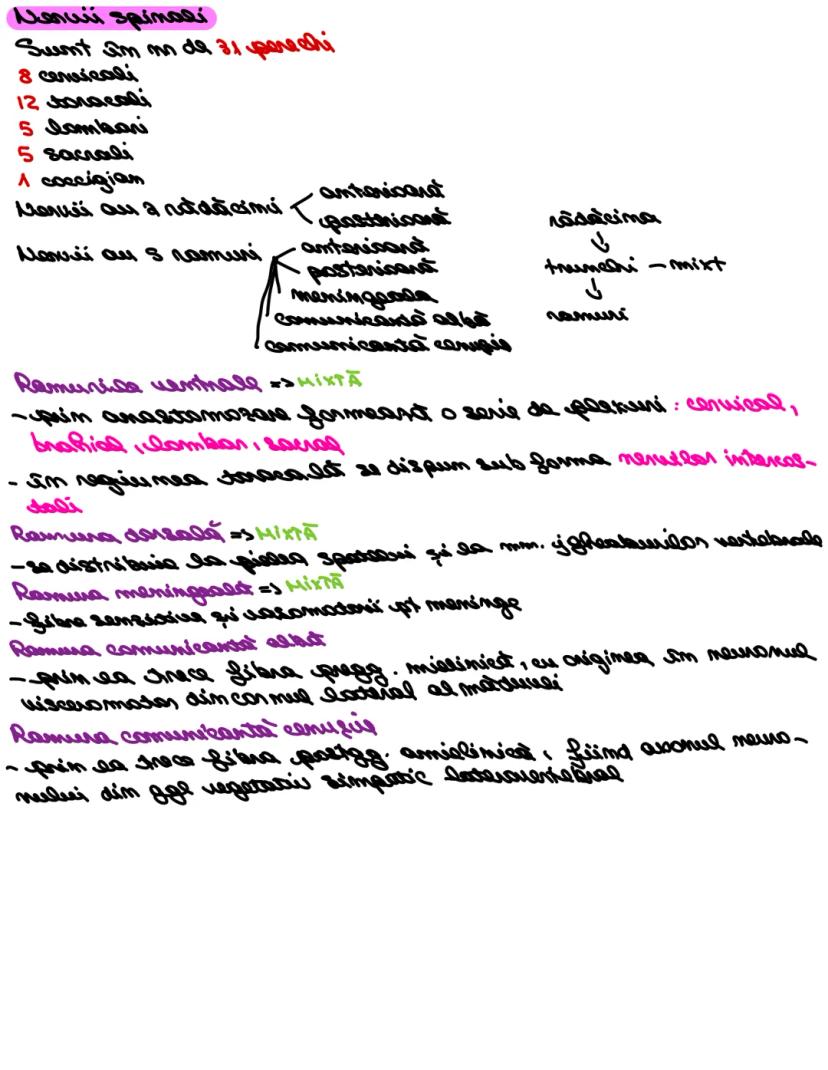 Nervii spinali
Sunt în nr de 31 perechi
8 cervicali
12 toracali
5 lombari
5 sacrali
1 coccigian
Nervii au 2 rădăcini < anterioară
posterioară
Nervii au 5 ramuri anterioară
posterioară
meningeala
comunicantă albă
comunicantă cenușie
rădăcina
↓
trunchi - mixt
↓
ramuri
Ramurile ventrale => MIXTĂ
- prin anastomozare formează o serie de plexuri : cervical,
brahial, lombar, sacral
- în regiunea toracală se dispun sub forma nervilor intercos-
tali
Ramura dorsală => MIXTĂ
- se distribuie la pielea spatelui și la mm. jgheaburilor vertebrale
Ramura meningeală => MIXTĂ
- fibre senzitive și vasomotorii pt meninge
Ramura comunicantă albă
- prin ea trece fibra pregg. mielinică, cu originea în neuronul
visceromotor din cornul lateral al măduvei
Ramura comunicantă cenușie
- prin ea trece fibra postgg. amielinică, fiind axonul neuro-
nului din ggl vegetativ simpatic laterovertebral